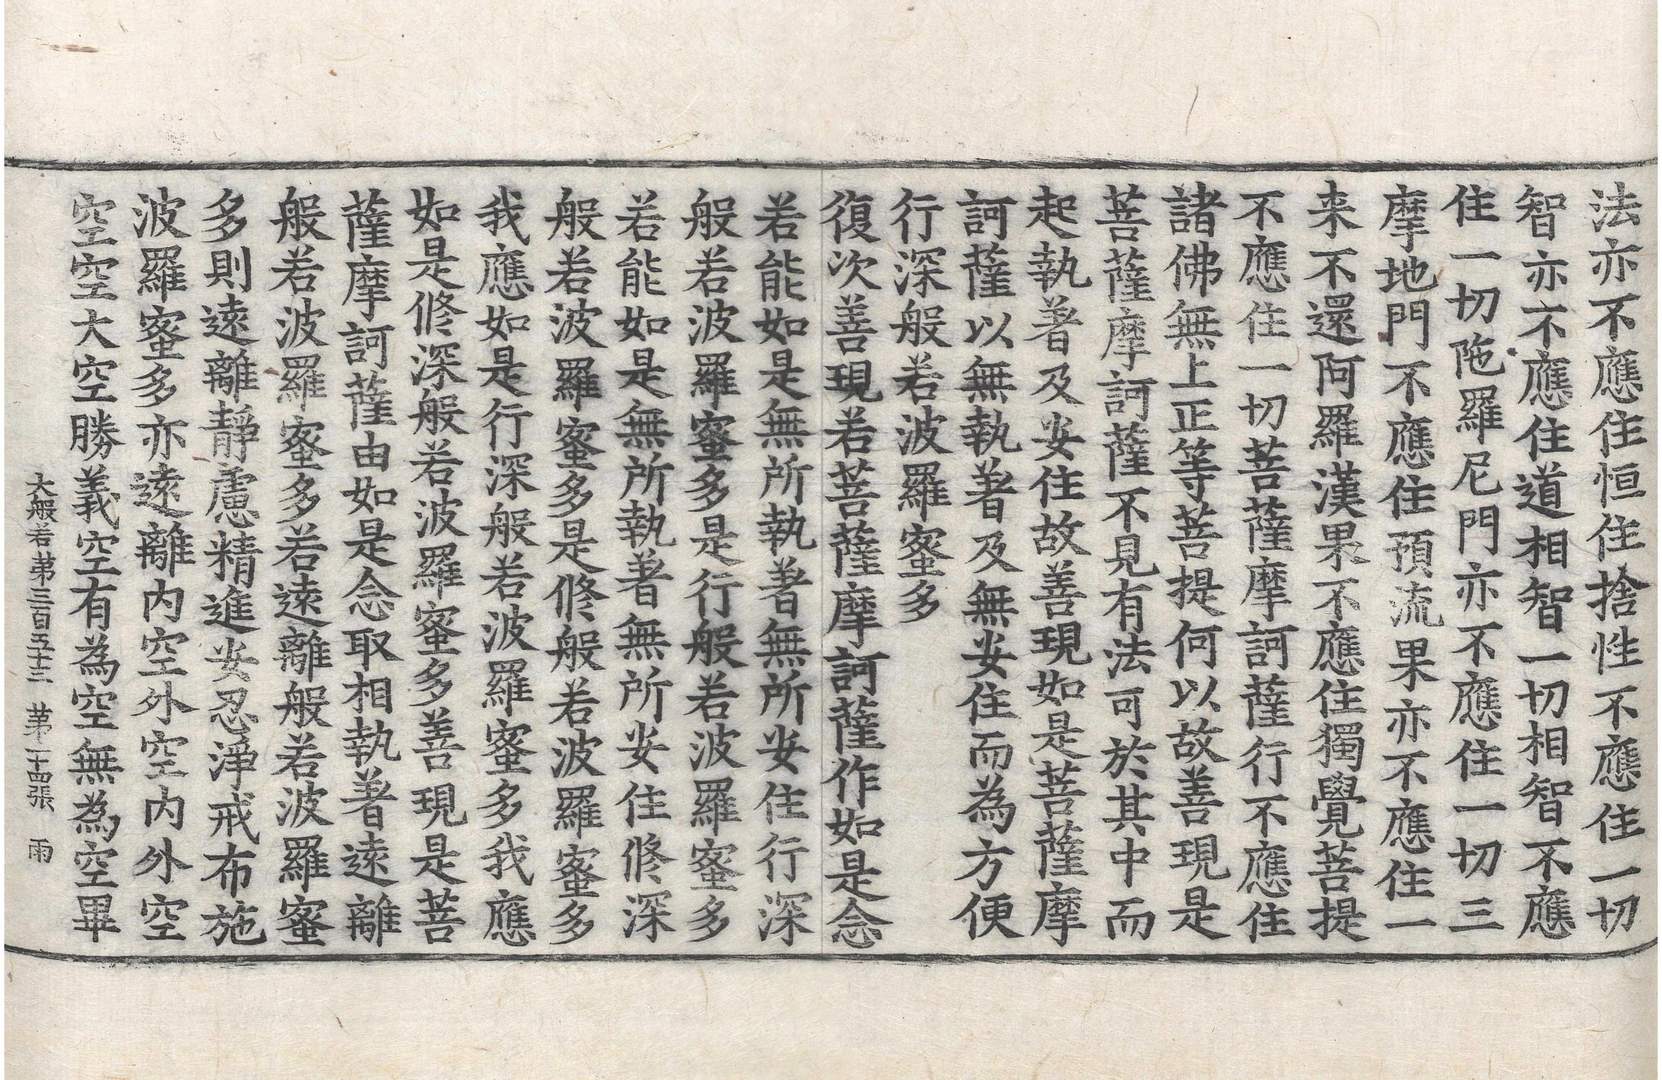 法亦不應住恒住捨性不應住一切
智亦不應住道相智一切相智不應
住一切陁羅尼門亦不應住一切三
摩地門不應住預流果亦不應住一
来不還阿羅漢果不應住獨覺菩提
不應住一切菩薩摩訶薩行不應住
諸佛無上正等菩提何以故善現是
菩薩摩訶薩不見有法可於其中而
起執著及安住故善現如是菩薩摩
訶薩以無執著及無安住而為方便
行深般若波羅蜜多
復次善現若菩薩摩訶薩作如是念
若能如是無所執著無所安住行深
般若波羅蜜多是行般若波羅蜜多
若能如是無所執著無所安住修深
般若波羅蜜多是修般若波羅蜜多
我應如是行深般若波羅蜜多我應
如是修深般若波羅蜜多善現是菩
薩摩訶薩由如是念取相執著遠離
般若波羅蜜多若遠離般若波羅蜜
多則遠離靜慮精進安忍淨戒布施
波羅蜜多亦遠離內空外空內外空
空空大空勝義空有為空無為空畢
大般若第三百五十三 第二十四張 雨